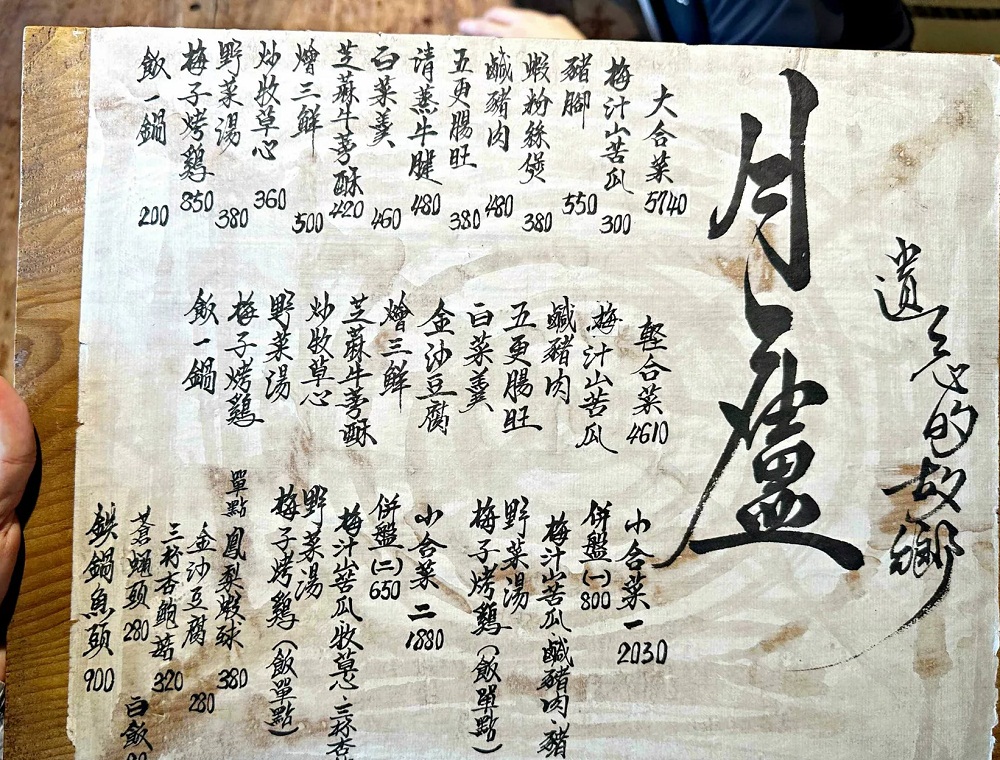 遺忘的故鄉
月廬
大合菜 5740
梅汁山苦瓜 300
豬腳 550
蝦粉絲煲 380
鹹豬肉 480
五更腸旺 380
清蒸牛腱 480
白菜羹 460
芝蔴牛蒡酥 420
燴三鮮 500
炒牧草心 360
野菜湯 380
梅子烤鷄 850
飯一鍋 200
輕合菜 4610
梅汁山苦瓜
鹹豬肉
五更腸旺
白菜羹
金沙豆腐
燴三鮮
芝蔴牛蒡酥
炒牧草心
野菜湯
梅子烤鷄
飯一鍋
小合菜一 2030
併盤(一) 800
梅汁山苦瓜 鹹豬肉 豬
野菜湯
梅子烤鷄(飯單點)
小合菜 二 1880
併盤(二) 650
梅汁山苦瓜 牧草心 三杯杏
野菜湯
梅子烤鷄(飯單點)
單點 鳳梨蝦球 380
金沙豆腐 280
三杯杏鮑菇 320
蒼蠅頭 280
白飯
鉄鍋魚頭 900